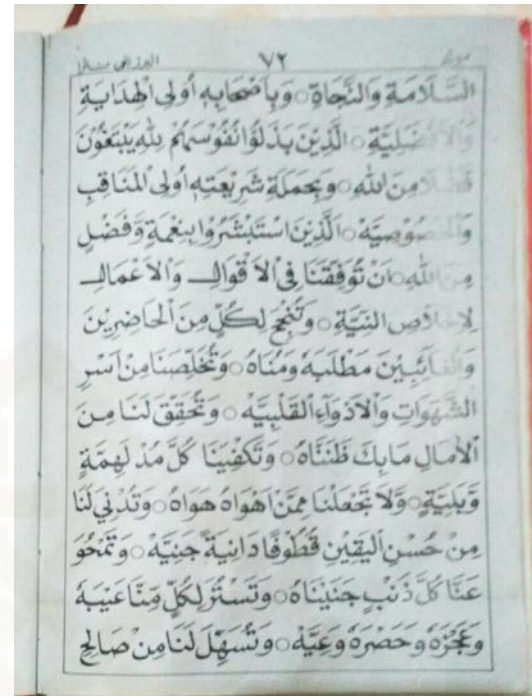 مولد ٧٢ البرزنجي نثرا
السَّلَامَةِ وَالنَّجَاةِ ○ وَبِأَصْحَابِهِ أُولِى الْهِدَايَةِ
وَالْاَفْضَلِيَّةِ ○ الَّذِيْنَ بَذَلُوْا نُفُوْسَهُمْ لِلّٰهِ يَبْتَغُوْنَ
فَضْلًا مِنَ اللهِ ○ وَبِحَمَلَةِ شَرِيْعَتِهِ أُولِى الْمَنَاقِبِ
وَالْخُصُوْصِيَّةْ ○ الَّذِيْنَ اسْتَبْشَرُوْا بِنِعْمَةٍ وَّفَضْلٍ
مِنَ اللهِ ○ اَنْ تُوَفِّقَنَا فِى الْاَقْوَالِ وَالْاَعْمَالِ
لِاِخْلَاصِ النِّيَّةِ ○ وَتُنْجِحَ لِكُلٍّ مِنَ الْحَاضِرِيْنَ
وَالْغَائِبِيْنَ مَطْلَبَهُ وَمُنَاهُ ○ وَتُخَلِّصَنَا مِنْ اَسْرِ
الشَّهَوَاتِ وَالْاَدْوَاءِ الْقَلْبِيَّهْ ○ وَتُحَقِّقَ لَنَا مِنَ
الْاٰمَالِ مَا بِكَ ظَنَنَّاهُ ○ وَتَكْفِيَنَا كُلَّ مُدْلَهِمَّةٍ
وَّبَلِيَّةٍ ○ وَلَا تَجْعَلْنَا مِمَّنْ اَهْوَاهُ هَوَاهُ ○ وَتُدْنِيَ لَنَا
مِنْ حُسْنِ الْيَقِيْنِ قُطُوْفًا دَانِيَةً جَنِيَّهْ ○ وَتَمْحُوَ
عَنَّا كُلَّ ذَنْبٍ جَنَيْنَاهُ ○ وَتَسْتُرَ لِكُلٍّ مِّنَّا عَيْبَهُ
وَعَجْزَهُ وَحَصْرَهُ وَعِيَّهْ ○ وَتُسَهِّلَ لَنَا مِنْ صَالِحِ